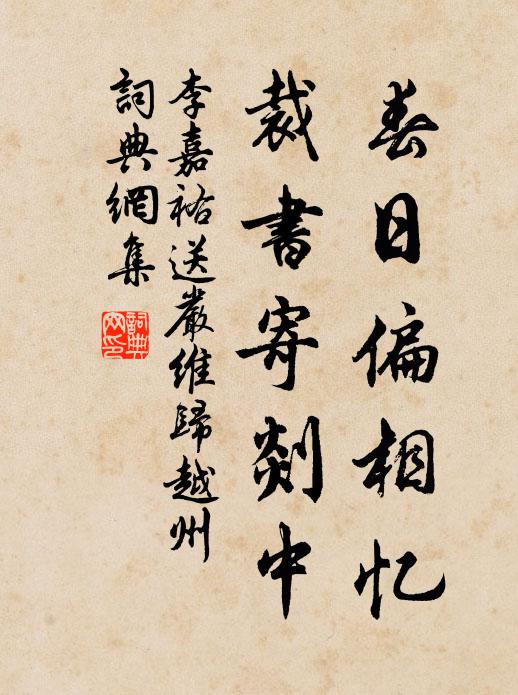 春日偏相忆
裁书寄剡中
李嘉祐送嚴維歸越州
詞典網集
詞典網印